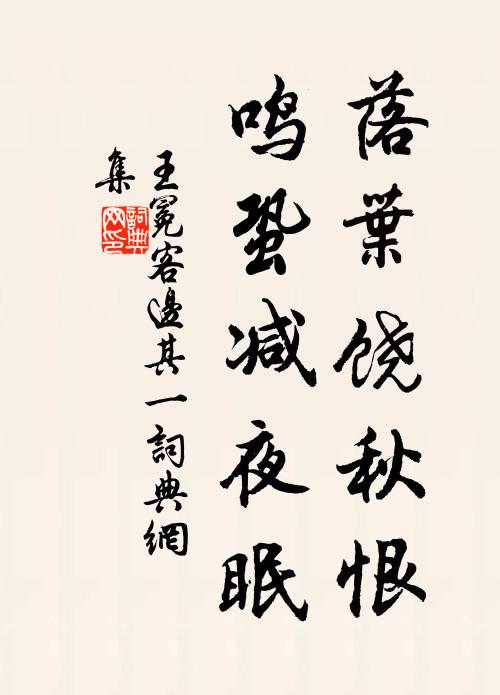 落葉饶秋恨
鸣蛩减夜眠
王冕客邊其一詞典網
集
詞典
网印